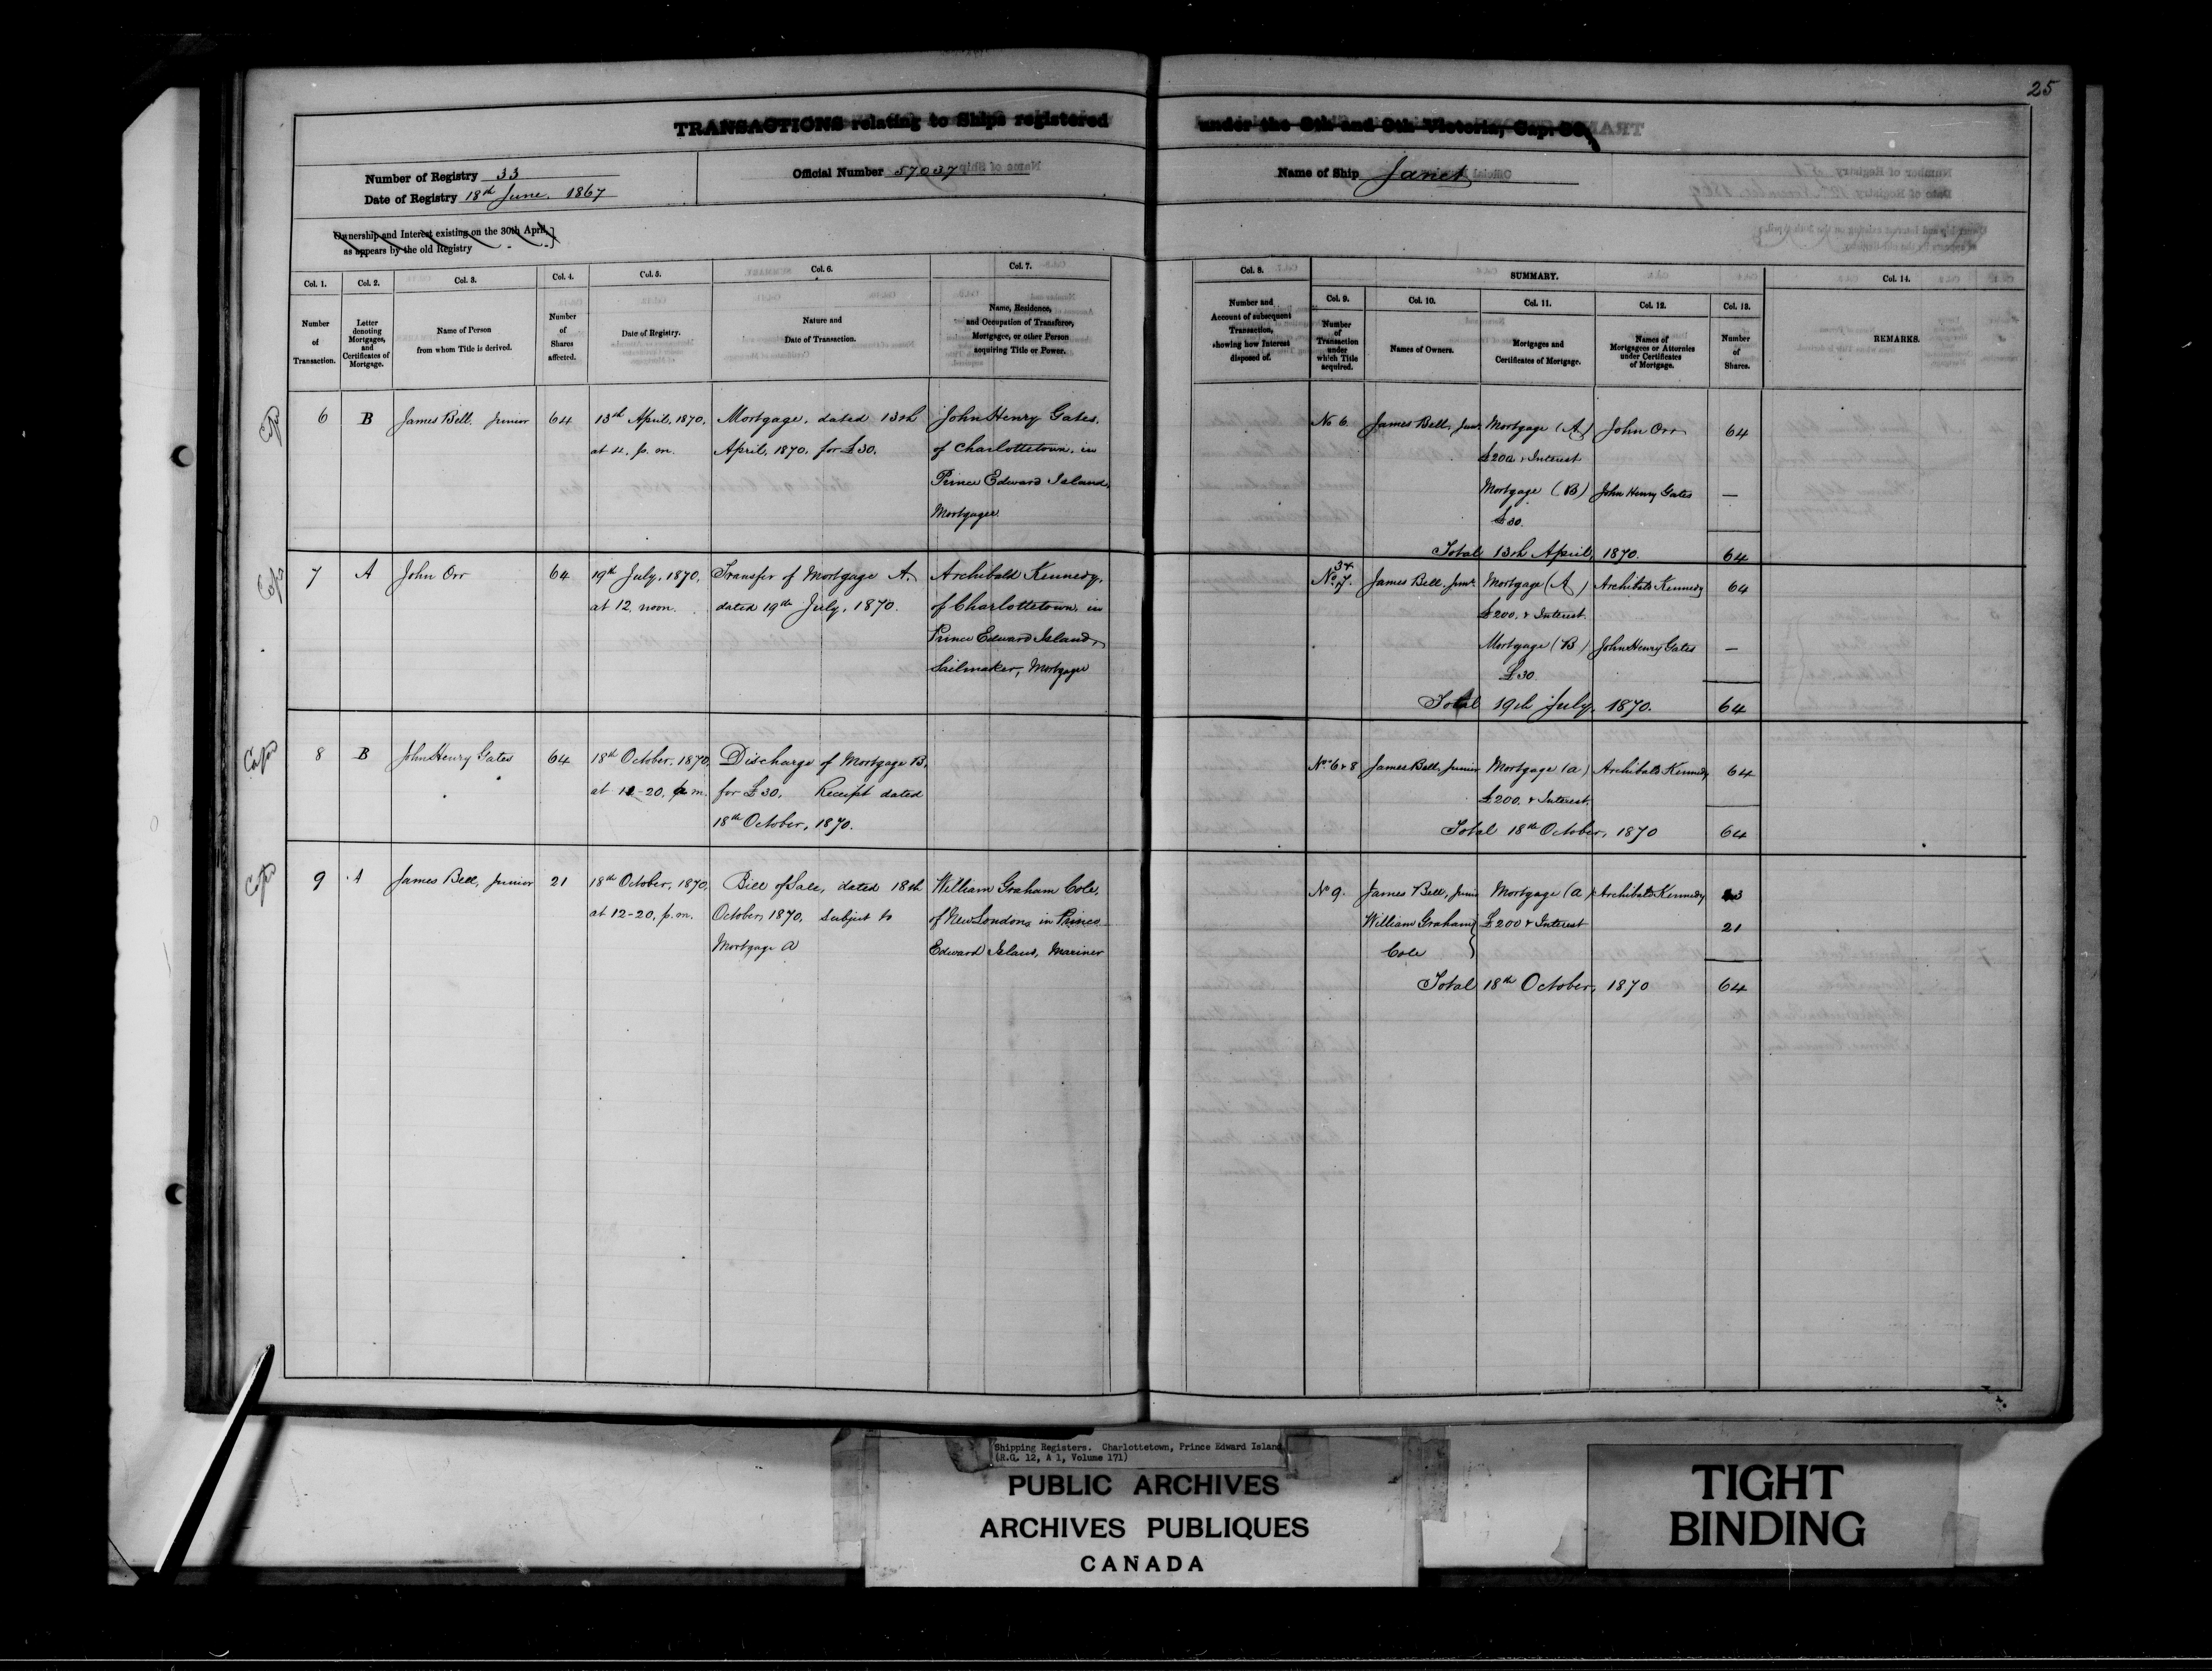 25
TRANSACTIONS relating to Ships registered under the 8th and 9th Victoria, Cap.
Number of Registry 33
Date of Registry 18th June, 1867
Official Number 57037
Name of Ship Janet
Ownership and Interest existing on the 30th April,
as appears by the old Registry
Col. 1. Col. 2. Col. 3. Col. 4. Col. 5. Col. 6. Col. 7. Col. 8. SUMMARY. Col. 14.
Col. 9. Col. 10. Col. 11. Col. 12. Col. 13.
Number of Transaction.
Letter denoting Mortgages, and Certificates of Mortgage.
Name of Person from whom Title is derived.
Number of Shares affected.
Date of Registry.
Nature and Date of Transaction.
Name, Residence, and Occupation of Transferee, Mortgagee, or other Person acquiring Title or Power.
Number and Account of subsequent Transaction, showing how Interest disposed of.
Number of Transaction under which Title acquired.
Names of Owners.
Mortgages and Certificates of Mortgage.
Names of Mortgagees or Attornies under Certificates of Mortgage.
Number of Shares.
REMARKS.
6 B James Bell, Junior 64 13th April, 1870, Mortgage, dated 13th John Henry Gates, No 6 James Bell, Junr. Mortgage (A) John Orr 64
p. m. April, 1870, for £30. of Charlottetown, in £200 & Interest
Prince Edward Island, Mortgage (B) John Henry Gates —
Mortgagee £30.
Total 13th April, 1870. 64
7 A John Orr 64 19th July, 1870, Transfer of Mortgage A. Archibald Kennedy, No. 7. James Bell, Junr. Mortgage (A) Archibald Kennedy 64
at 12, noon. dated 19th July, 1870. of Charlottetown, in £200, & Interest.
Prince Edward Island, Mortgage (B) John Henry Gates —
Sailmaker, Mortgagee £30.
Total 19th July, 1870. 64
8 B John Henry Gates 64 18th October, 1870, Discharge of Mortgage B, No. 6 & 8 James Bell, Junior Mortgage (a) Archibald Kennedy 64
at 12-20, p.m. for £30. Receipt dated £200. & Interest.
18th October, 1870. Total 18th October, 1870 64
9 A James Bell, Junior 21 18th October, 1870, Bill of Sale, dated 18th William Graham Cole, No 9. James Bell, Mortgage (a) Archibald Kennedy 43
at 12-20, p.m. October, 1870, Subject to of New London, in Prince William Graham £200 & Interest 21
Mortgage A Edward Island, Mariner Cole
Total 18th October, 1870 64
Shipping Registers. Charlottetown, Prince Edward Island
(R.G. 12, A 1, Volume 171)
PUBLIC ARCHIVES
ARCHIVES PUBLIQUES
CANADA
TIGHT
BINDING